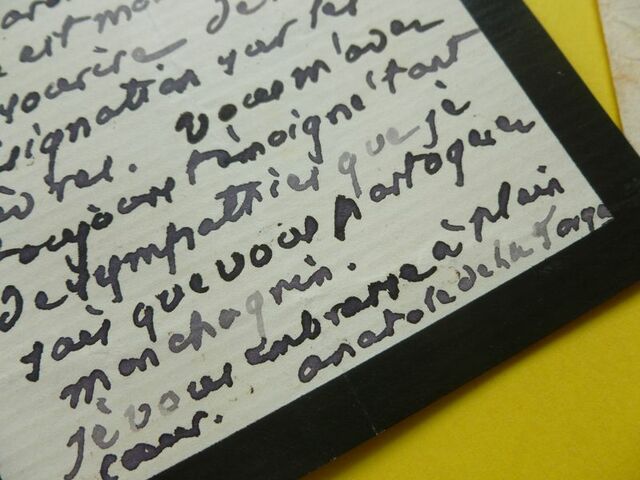 est
sourire de
signation sur les
èvres. Vous m'avez
toujours témoigné tant
de sympathies que je
sais que vous partagerez
mon chagrin.
je vous embrasse à plain
coeur. anatole de La Forge